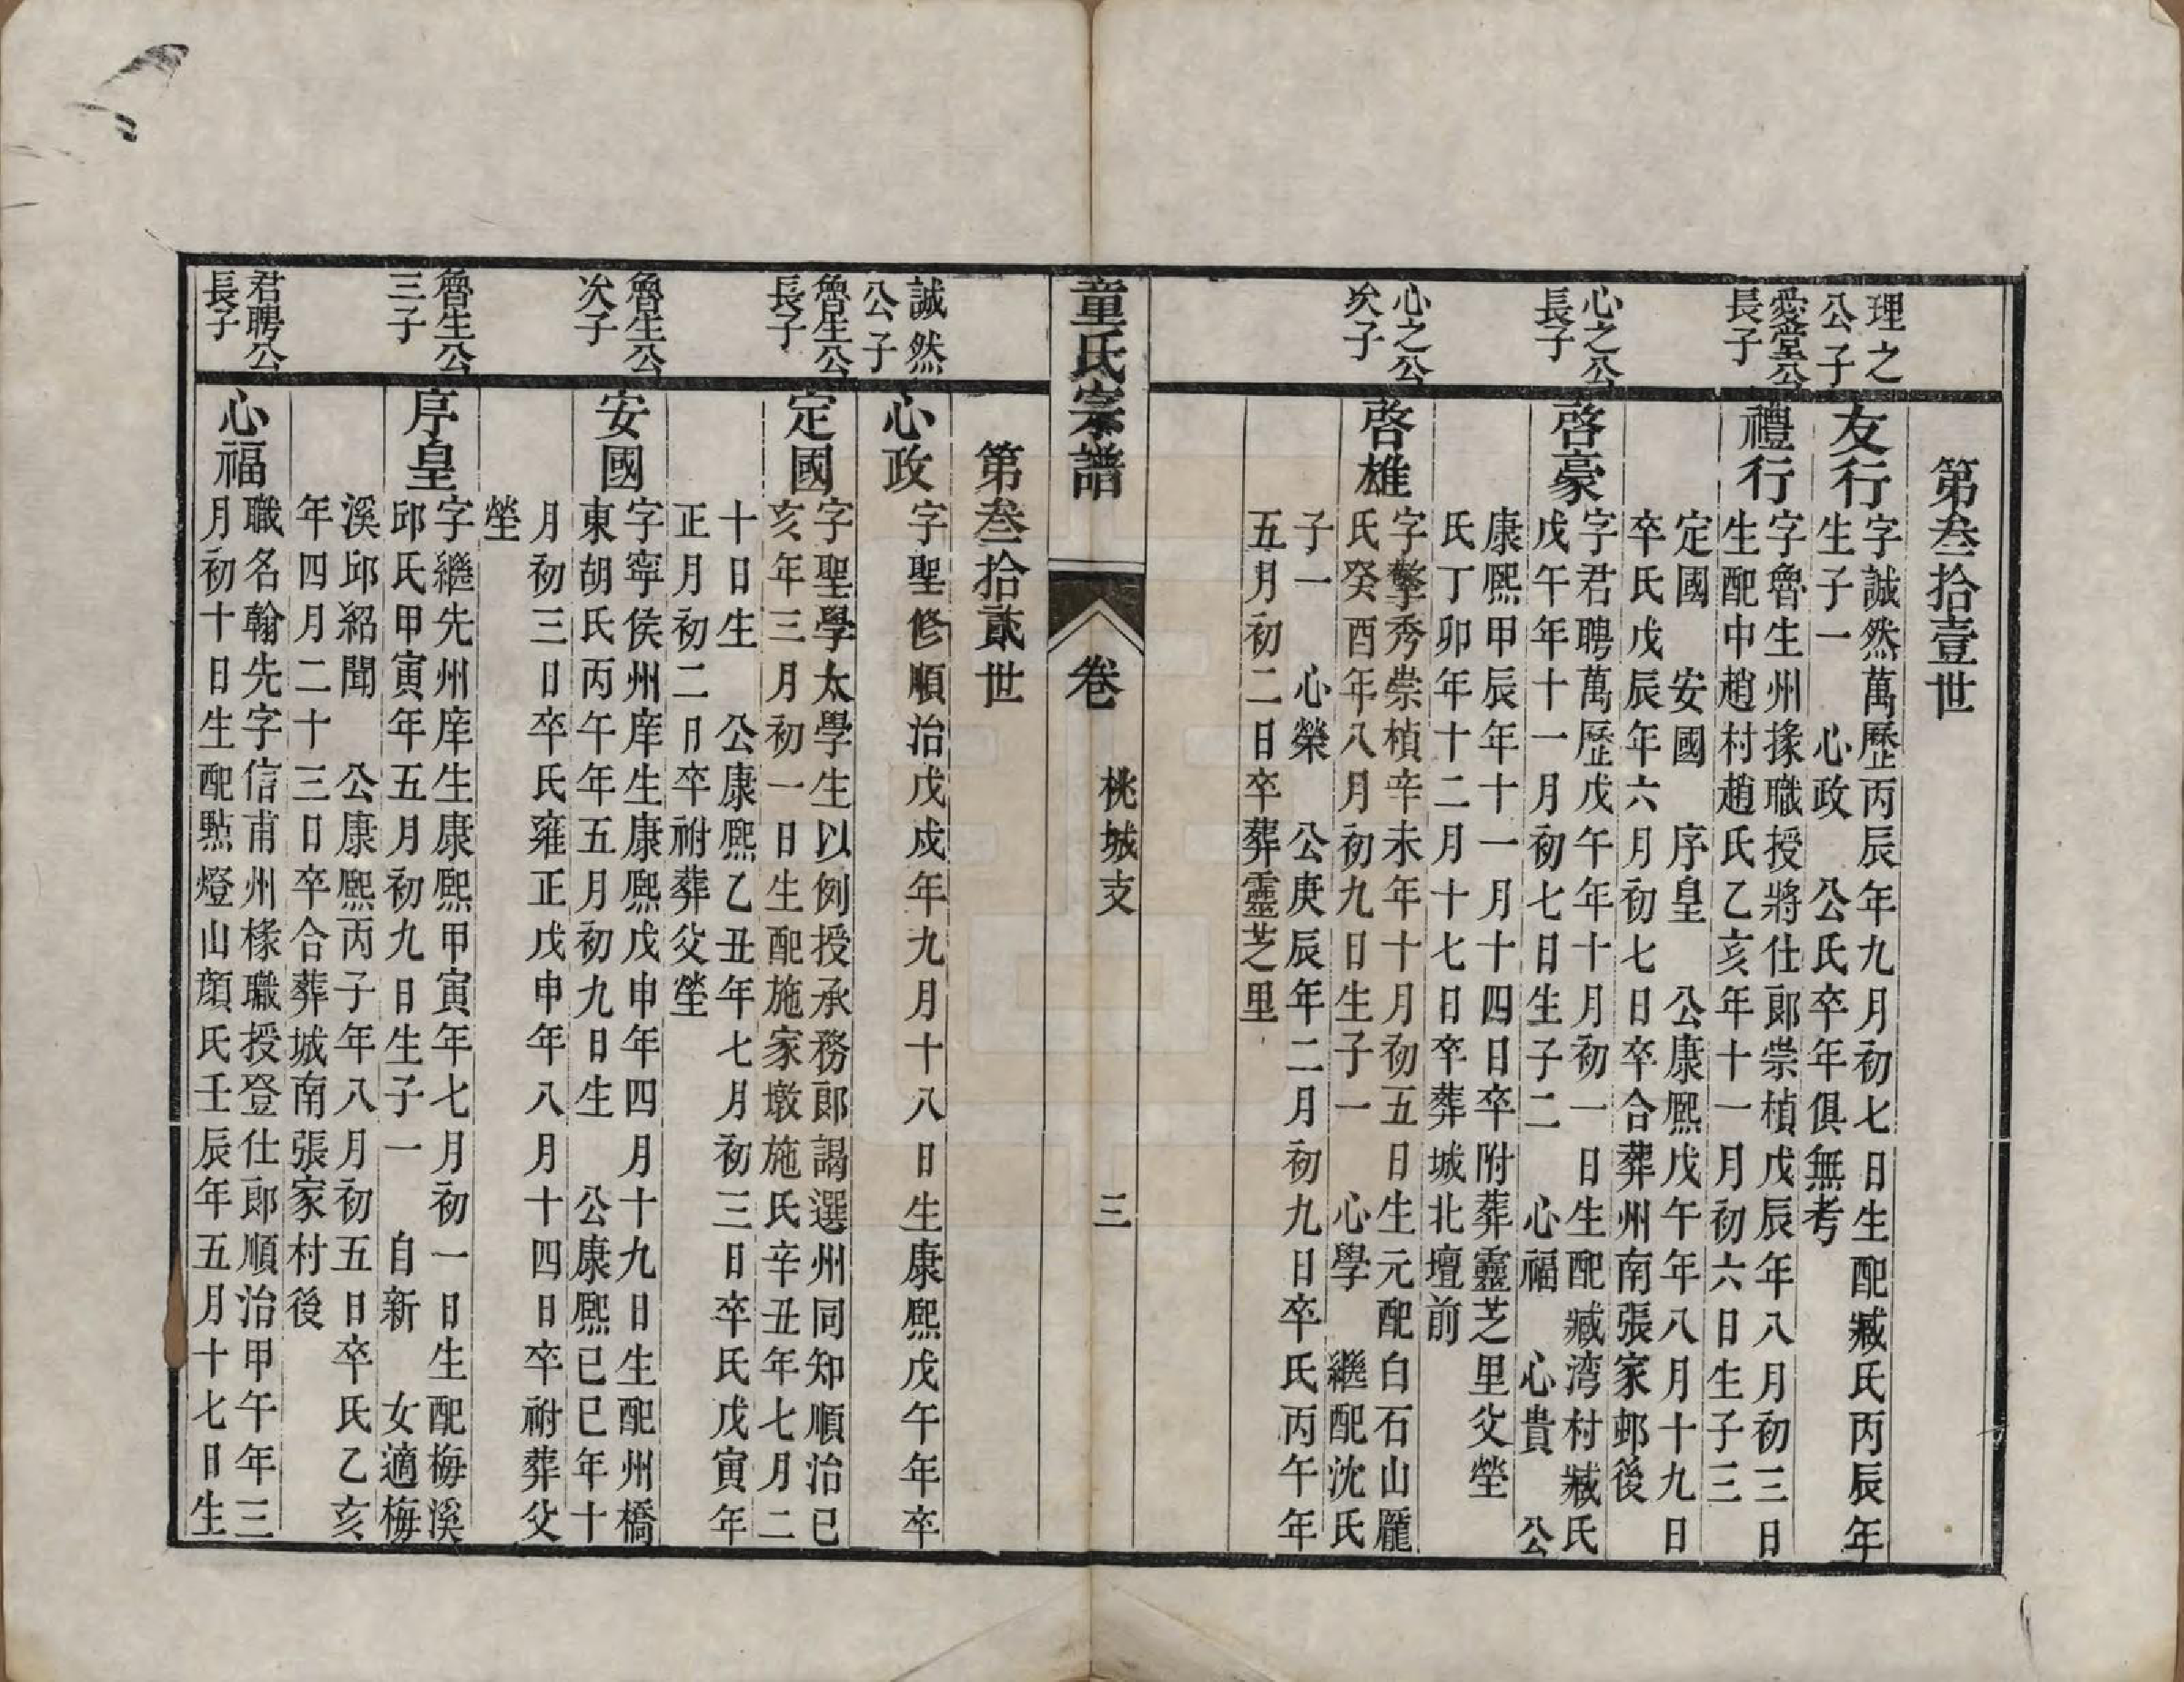 第叁拾壹世
理之
公子
友行
字誠然萬歷丙辰年九月初七日生配臧氏丙辰年
生子一　心政　公氏卒年俱無考
愛堂公
長子
禮行
字魯生州掾職授將仕郎崇楨戊辰年八月初三日
生配中趙村趙氏乙亥年十一月初六日生子三
定國　安國　序皇　公康熙戊午年八月十九日
卒氏戊辰年六月初七日卒合葬州南張家邨後
心之公
長子
啓豪
字君聘萬歷戊午年十月初一日生配臧湾村臧氏
戊午年十一月初七日生子二　心福　心貴　公
康熙甲辰年十一月十四日卒附葬靈芝里父塋
氏丁卯年十二月十七日卒葬城北壇前
心之公
次子
啓雄
字擎秀崇楨辛未年十月初五日生元配白石山龎
氏癸酉年八月初九日生子一　心學　繼配沈氏
子一　心榮　公庚辰年二月初九日卒氏丙午年
五月初二日卒葬靈芝里
童氏宗譜
卷
桃城支
三
第叁拾貳世
誠然
公子
心政
字聖修順治戊戍年九月十八日生康熙戊午年卒
魯生公
長子
定國
字聖學太學生以例授承務郎謁選州同知順治已
亥年三月初一日生配施家墩施氏辛丑年七月二
十日生　公康熙乙丑年七月初三日卒氏戊寅年
正月初二日卒祔葬父塋
魯生公
次子
安國
字寧侯州庠生康熙戊申年四月十九日生配州橋
東胡氏丙午年五月初九日生　公康熙已巳年十
月初三日卒氏雍正戊申年八月十四日卒祔葬父
塋
魯生公
三子
序皇
字繼先州庠生康熙甲寅年七月初一日生配梅溪
邱氏甲寅年五月初九日生子一　自新　女適梅
溪邱紹聞　公康熙丙子年八月初五日卒氏乙亥
年四月二十三日卒合葬城南張家村後
君聘公
長子
心福
職名翰先字信甫州椽職授登仕郎順治甲午年三
月初十日生配㸃燈山顔氏壬辰年五月十七日生